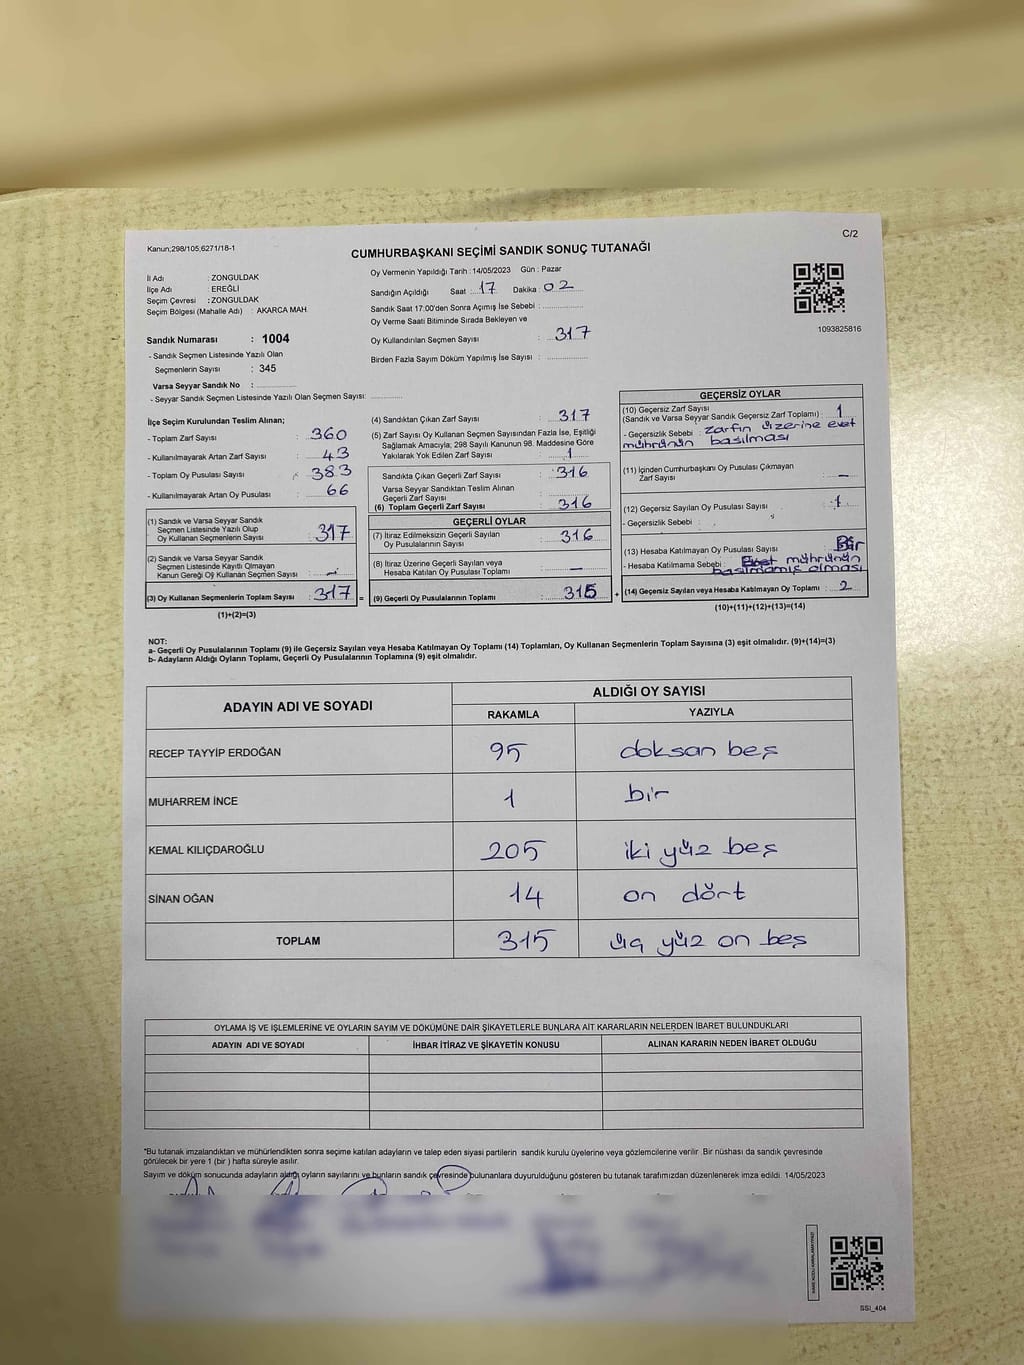 Kanun;298/105;6271/18-1
C/2
CUMHURBAŞKANI SEÇİMİ SANDIK SONUÇ TUTANAĞI
İl Adı : ZONGULDAK
İlçe Adı : EREĞLİ
Seçim Çevresi : ZONGULDAK
Seçim Bölgesi (Mahalle Adı) : AKARCA MAH.
Oy Vermenin Yapıldığı Tarih : 14/05/2023 Gün : Pazar
Sandığın Açıldığı Saat : 17 Dakika : 02
Sandık Saat 17:00'den Sonra Açımış İse Sebebi :
Oy Verme Saati Bitiminde Sırada Bekleyen ve
Oy Kullandırılan Seçmen Sayısı : 317
Birden Fazla Sayım Döküm Yapılmış İse Sayısı :
1093825816
Sandık Numarası : 1004
- Sandık Seçmen Listesinde Yazılı Olan
Seçmenlerin Sayısı : 345
Varsa Seyyar Sandık No :
- Seyyar Sandık Seçmen Listesinde Yazılı Olan Seçmen Sayısı:
İlçe Seçim Kurulundan Teslim Alınan;
- Toplam Zarf Sayısı : 360
- Kullanılmayarak Artan Zarf Sayısı : 43
- Toplam Oy Pusulası Sayısı : 383
- Kullanılmayarak Artan Oy Pusulası : 66
(1) Sandık ve Varsa Seyyar Sandık
Seçmen Listesinde Yazılı Olup
Oy Kullanan Seçmenlerin Sayısı : 317
(2) Sandık ve Varsa Seyyar Sandık
Seçmen Listesinde Kayıtlı Olmayan
Kanun Gereği Oy Kullanan Seçmen Sayısı : -
(3) Oy Kullanan Seçmenlerin Toplam Sayısı : 317 =
(1)+(2)=(3)
(4) Sandıktan Çıkan Zarf Sayısı : 317
(5) Zarf Sayısı Oy Kullanan Seçmen Sayısından Fazla İse, Eşitliği
Sağlamak Amacıyla, 298 Sayılı Kanunun 98. Maddesine Göre
Yakılarak Yok Edilen Zarf Sayısı : 1
Sandıkta Çıkan Geçerli Zarf Sayısı : 316
Varsa Seyyar Sandıktan Teslim Alınan
Geçerli Zarf Sayısı :
(6) Toplam Geçerli Zarf Sayısı : 316
GEÇERLİ OYLAR
(7) İtiraz Edilmeksizin Geçerli Sayılan
Oy Pusulalarının Sayısı : 316
(8) İtiraz Üzerine Geçerli Sayılan veya
Hesaba Katılan Oy Pusulası Toplamı : -
(9) Geçerli Oy Pusulalarının Toplamı : 315 +
GEÇERSİZ OYLAR
(10) Geçersiz Zarf Sayısı
(Sandık ve Varsa Seyyar Sandık Geçersiz Zarf Toplamı) : 1
- Geçersizlik Sebebi : zarfın üzerine evet
mührünün basılması
(11) İçinden Cumhurbaşkanı Oy Pusulası Çıkmayan
Zarf Sayısı : -
(12) Geçersiz Sayılan Oy Pusulası Sayısı : 1
- Geçersizlik Sebebi :
(13) Hesaba Katılmayan Oy Pusulası Sayısı : Bir
- Hesaba Katılmama Sebebi : Evet mührünün
basılmamış olması
(14) Geçersiz Sayılan veya Hesaba Katılmayan Oy Toplamı : 2
(10)+(11)+(12)+(13)=(14)
NOT:
a- Geçerli Oy Pusulalarının Toplamı (9) ile Geçersiz Sayılan veya Hesaba Katılmayan Oy Toplamı (14) Toplamları, Oy Kullanan Seçmenlerin Toplam Sayısına (3) eşit olmalıdır. (9)+(14)=(3)
b- Adayların Aldığı Oyların Toplamı, Geçerli Oy Pusulalarının Toplamına (9) eşit olmalıdır.
ADAYIN ADI VE SOYADI
ALDIĞI OY SAYISI
RAKAMLA YAZIYLA
RECEP TAYYİP ERDOĞAN 95 doksan beş
MUHARREM İNCE 1 bir
KEMAL KILIÇDAROĞLU 205 iki yüz beş
SİNAN OĞAN 14 on dört
TOPLAM 315 üç yüz on beş
OYLAMA İŞ VE İŞLEMLERİNE VE OYLARIN SAYIM VE DÖKÜMÜNE DAİR ŞİKAYETLERLE BUNLARA AİT KARARLARIN NELERDEN İBARET BULUNDUKLARI
ADAYIN ADI VE SOYADI İHBAR İTİRAZ VE ŞİKAYETİN KONUSU ALINAN KARARIN NEDEN İBARET OLDUĞU
*Bu tutanak imzalandıktan ve mühürlendikten sonra seçime katılan adayların ve talep eden siyasi partilerin sandık kurulu üyelerine veya gözlemcilerine verilir. Bir nüshası da sandık çevresinde
görülecek bir yere 1 (bir) hafta süreyle asılır.
Sayım ve döküm sonucunda adayların aldığı oyların sayılarını ve bunların sandık çevresinde bulunanlara duyurulduğunu gösteren bu tutanak tarafımızdan düzenlenerek imza edildi. 14/05/2023
SSI_404